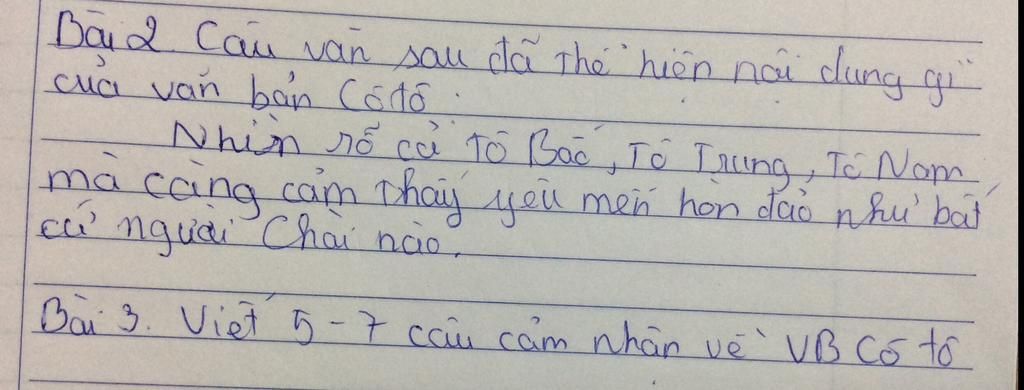 Bài 2. Câu văn sau đã thể hiện nội dung gì
của văn bản Cô tô.
Nhìn rõ cả Tô Bắc, Tô Trung, Tô Nam
mà càng cảm thấy yêu mến hòn đảo như bất
cứ người Chài nào.
Bài 3. Viết 5-7 câu cảm nhận về VB Cô tô